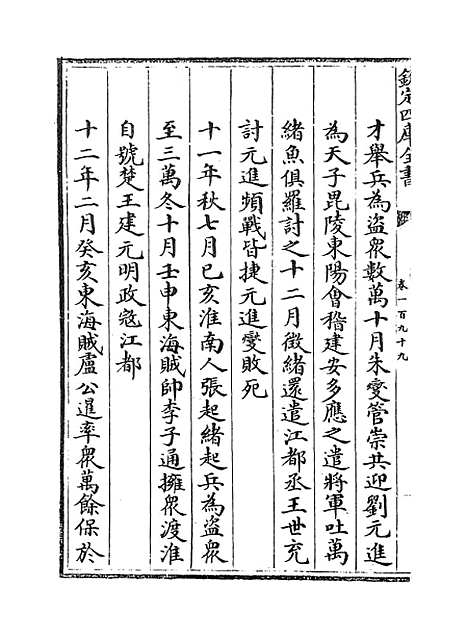 欽定四庫全書
卷一百九十九
才舉兵為盜衆數萬十月朱燮管崇共迎劉元進
為天子毘陵東陽會稽建安多應之遣將軍吐萬
緒魚俱羅討之十二月徴緒還遣江都丞王世充
討元進頻戰皆捷元進燮敗死
十一年秋七月己亥淮南人張起緒起兵為盜衆
至三萬冬十月壬申東海賊帥李子通擁衆渡淮
自號楚王建元明政寇江都
十二年二月癸亥東海賊盧公暹率衆萬餘保於